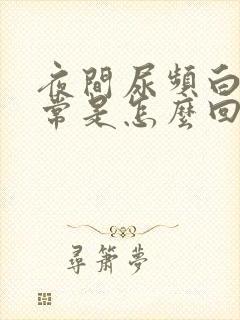 夜間尿頻白
常是怎麼回
尋簫夢